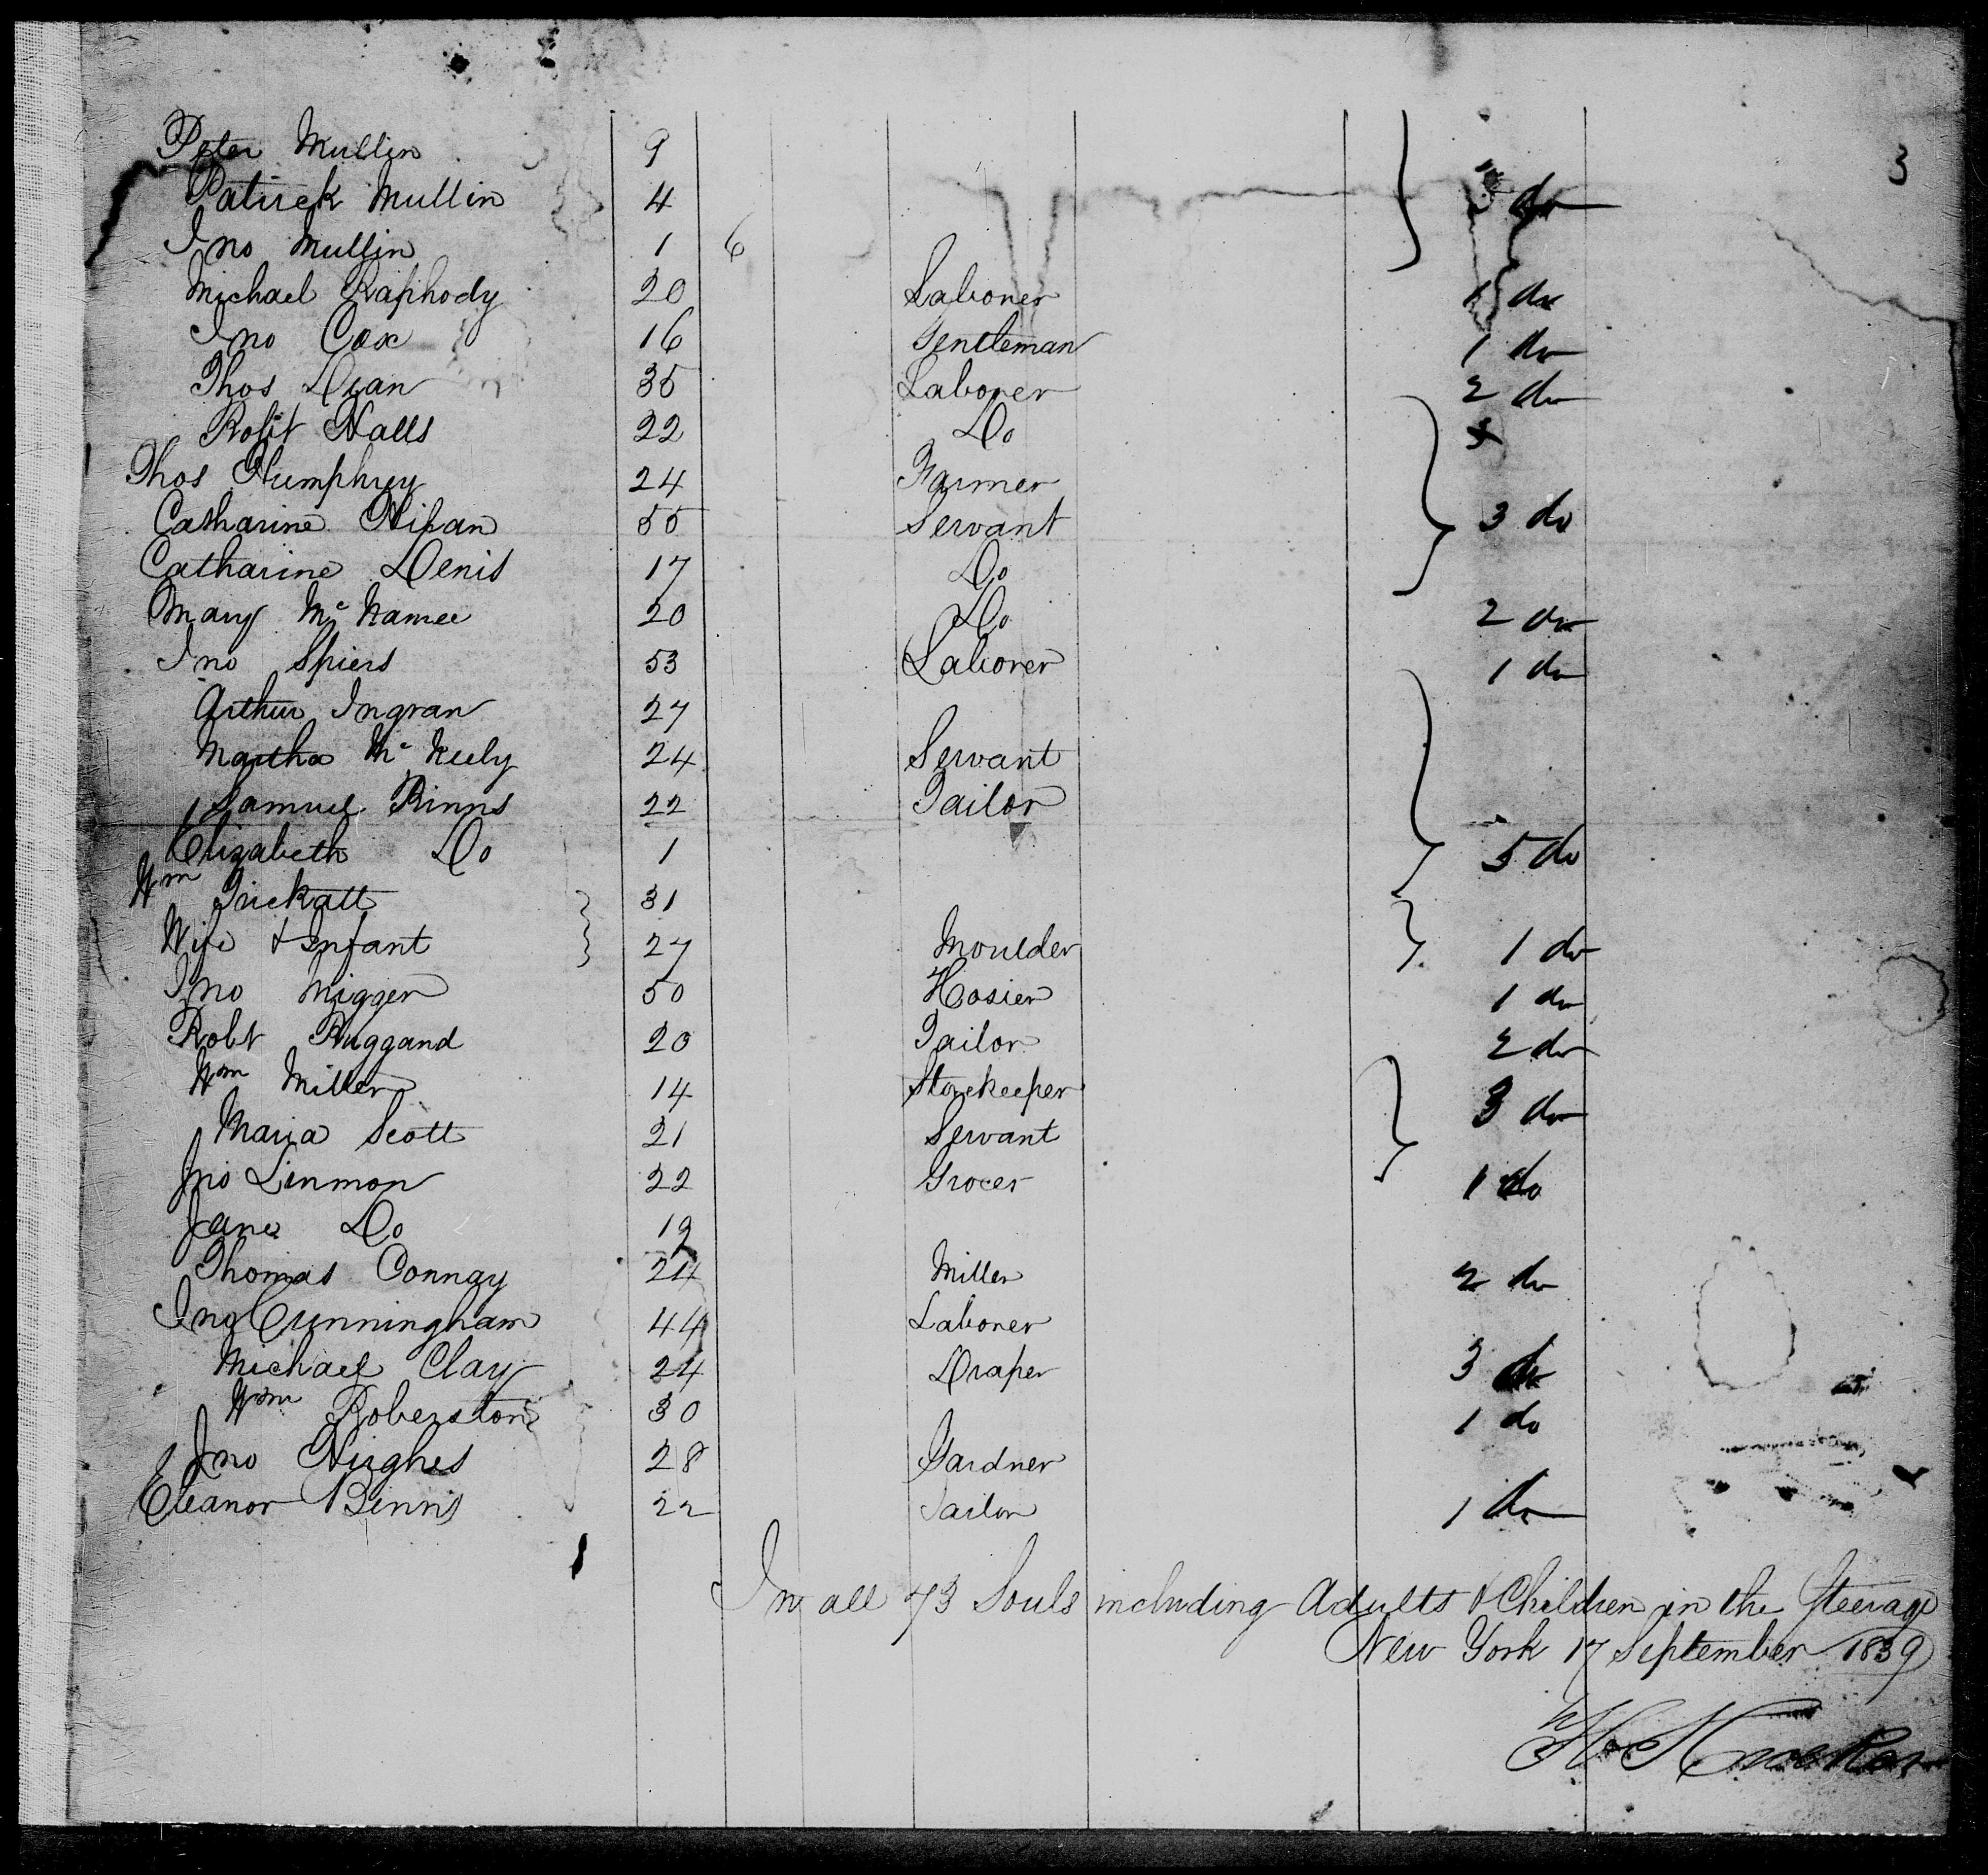 3
Peter Mullin 9
Patrick Mullin 4 do
Jno Mullin 1 6
Michael Raphody 20 Laborer 1 do
Jno Cox 16 Gentleman 1 do
Thos Dean 35 Laborer 2 do
Robt Halls 22 Do
Thos Humphrey 24 Farmer
Catharine 55 Servant 3 do
Catharine Denis 17 Do
Mary McNamee 20 Do 2 do
Jno Spiers 53 Laborer 1 do
Arthur Ingran 27
Martha McNeely 24 Servant
Samuel Binns 22 Tailor
Elizabeth Do 1 5 do
Wm Trickatt 31
Wife & Infant 27 Moulder 1 do
Jno 50 Hosier 1 do
Robt Huggand 20 Tailor 2 do
Wm Miller 14 Storekeeper 3 do
Maria Scott 21 Servant
Jno Linmon 22 Grocer 1 do
Jane Do 19
Thomas Connay 24 Miller 2 do
Jno Cunningham 44 Laborer
Michael Clay 24 Draper 3 do
Wm Roberston 30 1 do
Jno Hughes 28 Gardner
Eleanor Binns 22 Tailor 1 do
In all 73 Souls including Adults & Children in the Steerage
New York 17 September 1839